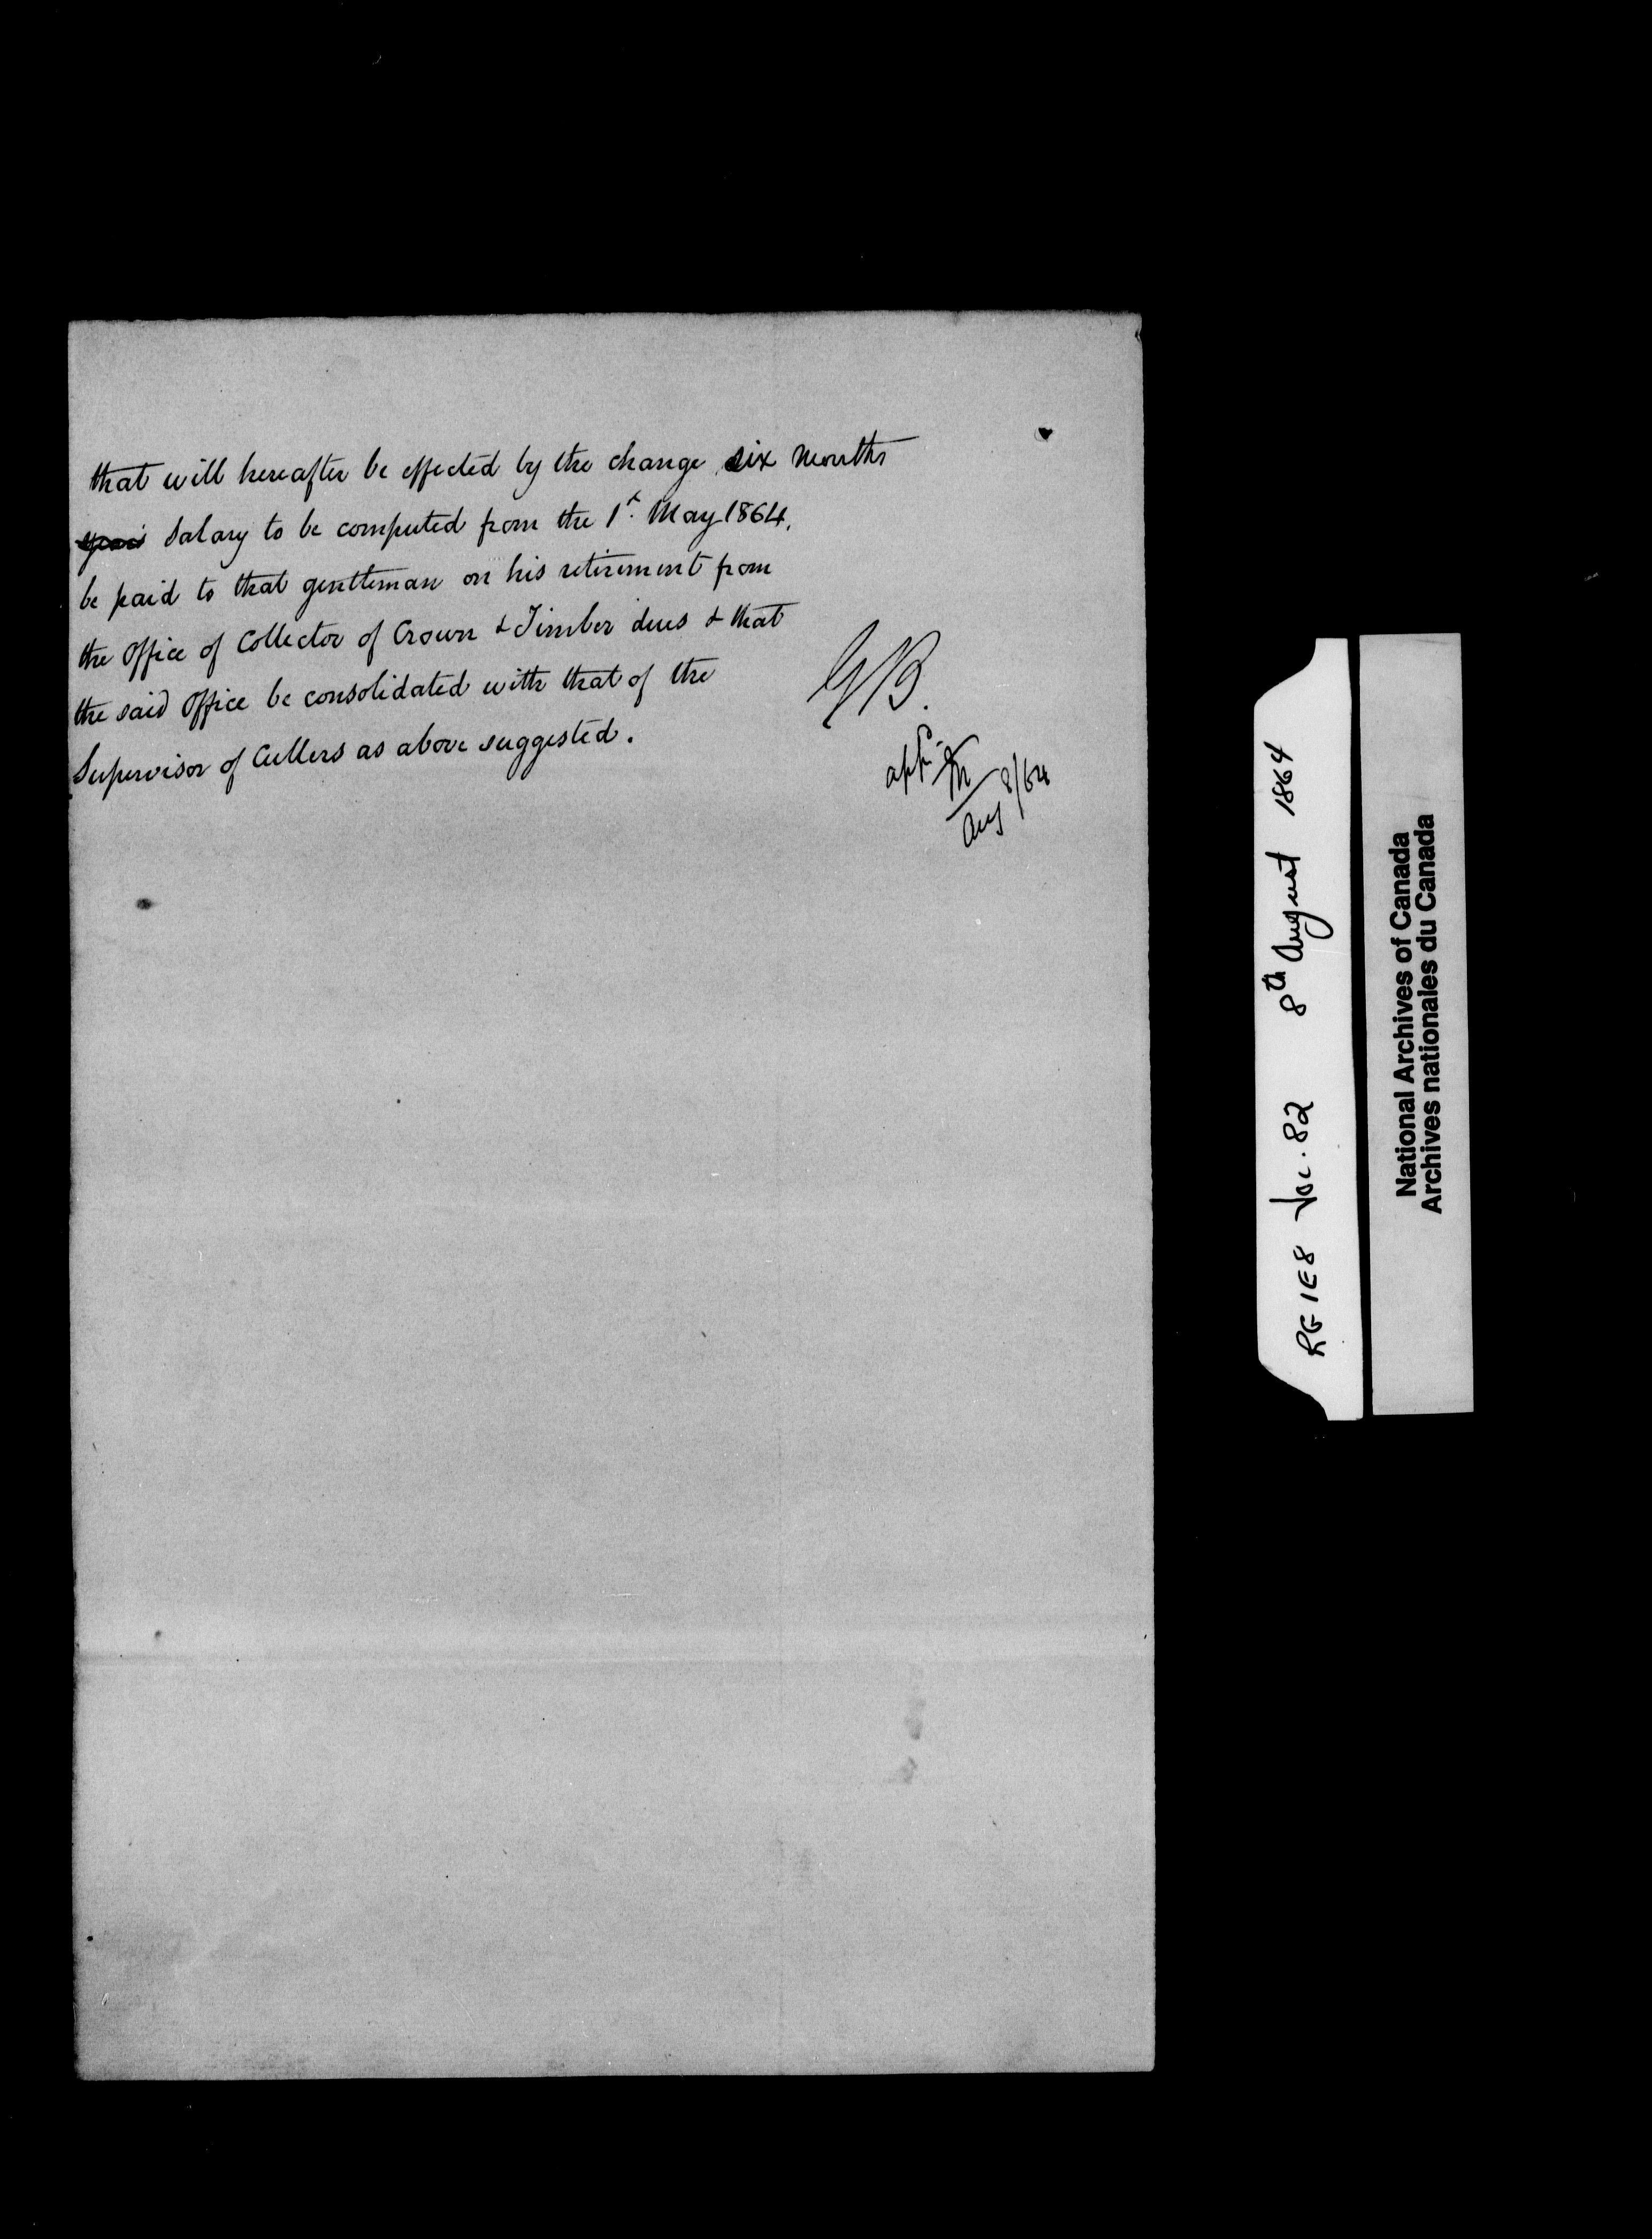 that will hereafter be effected by the change six months
year's salary to be computed from the 1st. May 1864.
be paid to that gentleman on his retirement from
the Office of Collector of Crown & Timber dues & that
the said Office be consolidated with that of the
Supervisor of Cullers as above suggested.
GB.
appd.
Aug 8/64
RG 1E8 Vol. 82 8th August 1864
National Archives of Canada
Archives nationales du Canada